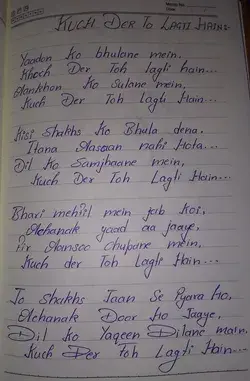 Kuch Der To Lagti Hains-
Yaadon Ko bhulane mein,
Khoch Der Toh lagli hain...
Aankhon Ko Sulane mein,
Kuch Der Toh Lagti Hain...
Kisi Shakhs Ko Bhula dena.
Itana Aasaan nahi Hota...
Dil Ko Samjhaane mein,
Kuch Der Toh Lagli Hain...
Bhari mehfil mein jab Koi,
Achanak yaad aa jaaye,
Fir Aansoo Chupane mein,
Kuch der Toh Lagli Hain...
Jo Shakhs Jaan Se Pyara Ho,
Achanak Door Ho Jaaye,
Dil Ko Yaqeen Dilane main,
Kuch Der Toh Lagti Hain...